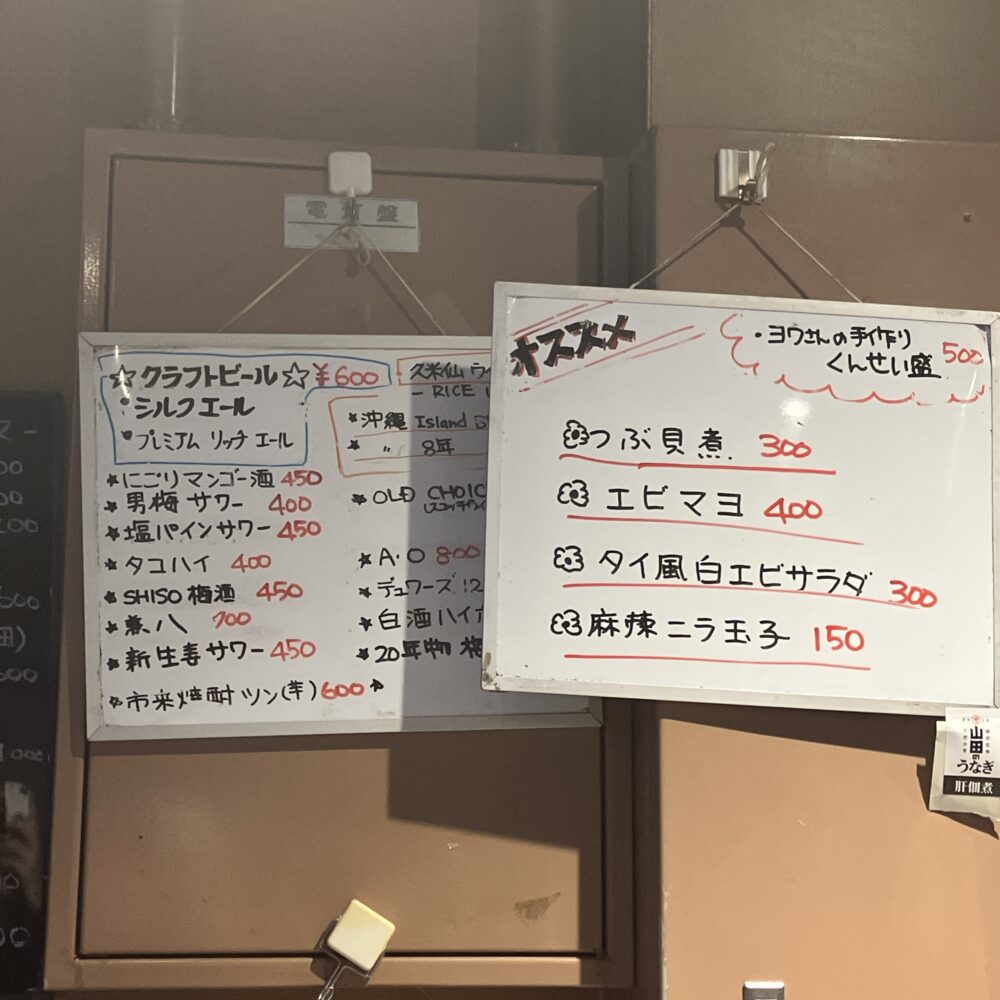 電灯盤
☆クラフトビール☆ ¥600
・シルクエール
・プレミアム リッチ エール
★にごりマンゴー酒 450
★男梅サワー 400
★塩パインサワー 450
★タコハイ 400
★SHISO梅酒 450
★兼八 700
★新生姜サワー 450
★市来焼酎ツン(芋) 600 ★
久米仙 ウイ
- RICE
★沖縄 Island
★ 〃 8年
★OLD CHOIC
★A・O 800
★デュワーズ 12
★白酒ハイ
★20年物 梅
オススメ
・ヨウさんの手作り
くんせい盛 500
つぶ貝煮 300
エビマヨ 400
タイ風白エビサラダ 300
麻辣ニラ玉子 150
山田の
うなぎ
肝佃煮